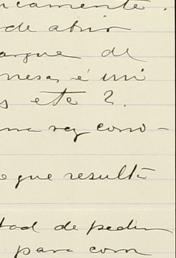 ncamente.
de abrir
arque de
mesa, é um
s ete 2.
me vez com-
o que resulta
tad de pedir
para com